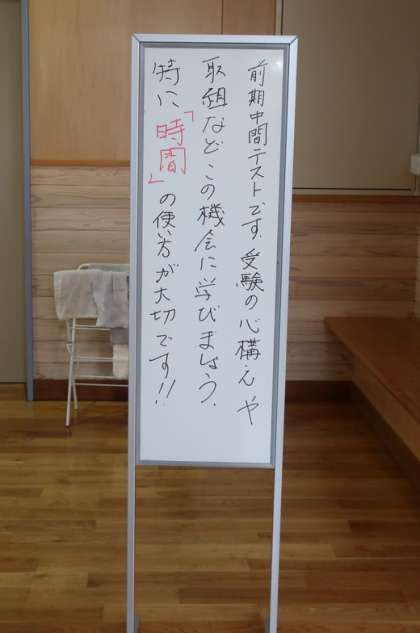 前期中間テストです.受験の心構えや
取組などこの機会に学びましょう.
特に「時間」の使い方が大切です!!